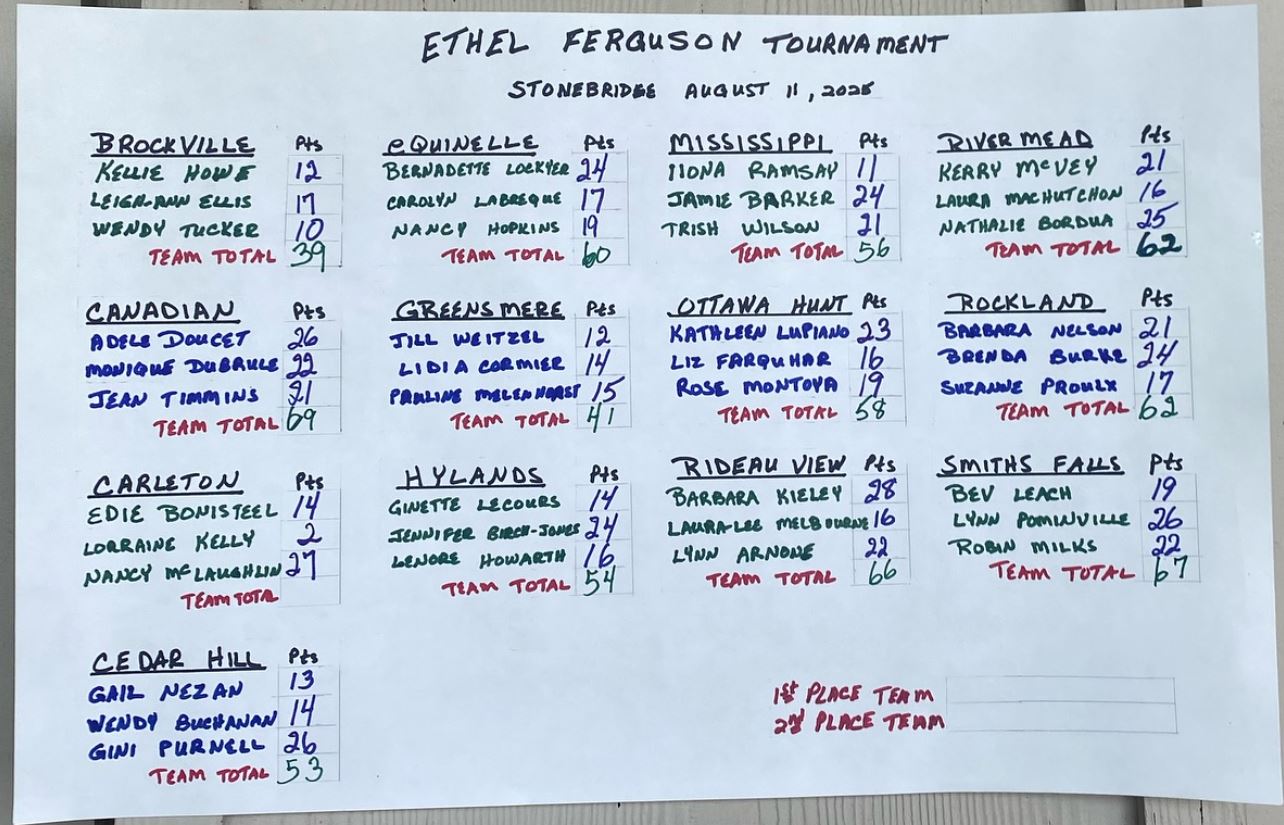 ETHEL FERGUSON TOURNAMENT
STONEBRIDGE AUGUST 11, 2025
BROCKVILLE Pts
KELLIE HOWE 12
LEIGH-ANN ELLIS 17
WENDY TUCKER 10
TEAM TOTAL 39
eQUINELLE Pts
BERNADETTE LOCKYER 24
CAROLYN LABREQUE 17
NANCY HOPKINS 19
TEAM TOTAL 60
MISSISSIPPI Pts
IIONA RAMSAY 11
JAMIE BARKER 24
TRISH WILSON 21
TEAM TOTAL 56
RIVERMEAD Pts
KERRY McVEY 21
LAURA MACHUTCHON 16
NATHALIE BORDUA 25
TEAM TOTAL 62
CANADIAN Pts
ADELE DOUCET 26
MONIQUE DUBRULE 22
JEAN TIMMINS 21
TEAM TOTAL 69
GREENSMERE Pts
JILL WEITZEL 12
LIDIA CORMIER 14
PAULINE MELENHORST 15
TEAM TOTAL 41
OTTAWA HUNT Pts
KATHLEEN LUPIANO 23
LIZ FARQUHAR 16
ROSE MONTOYA 19
TEAM TOTAL 58
ROCKLAND Pts
BARBARA NELSON 21
BRENDA BURKE 24
SUZANNE PROULX 17
TEAM TOTAL 62
CARLETON Pts
EDIE BONISTEEL 14
LORRAINE KELLY 2
NANCY McLAUGHLIN 27
TEAM TOTAL
HYLANDS Pts
GINETTE LECOURS 14
JENNIFER BIRCH-JONES 24
LENORE HOWARTH 16
TEAM TOTAL 54
RIDEAU VIEW Pts
BARBARA KIELEY 28
LAURA-LEE MELBOURNE 16
LYNN ARNONE 22
TEAM TOTAL 66
SMITHS FALLS Pts
BEV LEACH 19
LYNN POMINVILLE 26
ROBIN MILKS 22
TEAM TOTAL 67
CEDAR HILL Pts
GAIL NEZAN 13
WENDY BUCHANAN 14
GINI PURNELL 26
TEAM TOTAL 53
1st PLACE TEAM
2nd PLACE TEAM